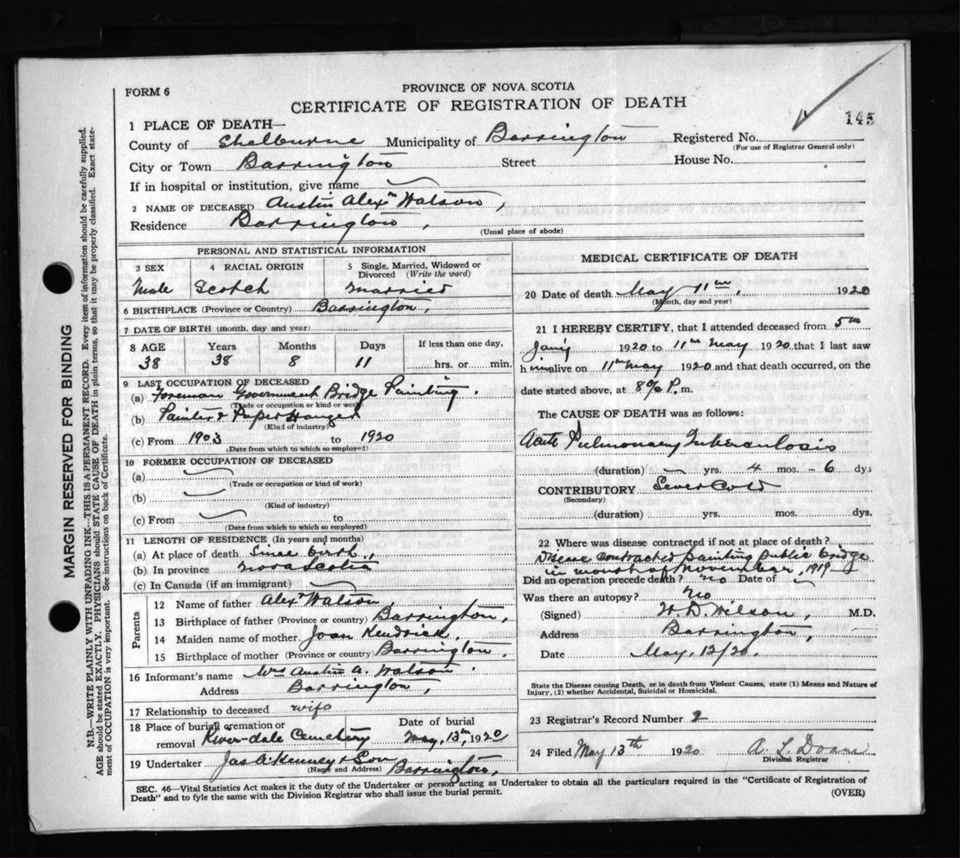 FORM 6
PROVINCE OF NOVA SCOTIA
CERTIFICATE OF REGISTRATION OF DEATH
145
1 PLACE OF DEATH—
County of Shelburne Municipality of Barrington Registered No.
(For use of Registrar General only)
City or Town Barrington Street House No.
If in hospital or institution, give name
2 NAME OF DECEASED Austin Alexr Watson,
Residence Barrington,
(Usual place of abode)
PERSONAL AND STATISTICAL INFORMATION
3 SEX 4 RACIAL ORIGIN 5 Single, Married, Widowed or Divorced (Write the word)
Male Scotch Married
6 BIRTHPLACE (Province or Country) Barrington,
7 DATE OF BIRTH (month, day and year)
8 AGE Years Months Days If less than one day,
38 38 8 11 hrs. or min.
9 LAST OCCUPATION OF DECEASED
(a) Foreman Government Bridge Painting.
(Trade or occupation or kind of work)
(b) Painter & Paper Hanger
(Kind of industry)
(c) From 1903 to 1920
(Date from which to which so employed)
10 FORMER OCCUPATION OF DECEASED
(a)
(Trade or occupation or kind of work)
(b)
(Kind of industry)
(c) From to
(Date from which to which so employed)
11 LENGTH OF RESIDENCE (In years and months)
(a) At place of death Since birth,
(b) In province Nova Scotia
(c) In Canada (if an immigrant)
Parents
12 Name of father Alexr Watson
13 Birthplace of father (Province or country) Barrington,
14 Maiden name of mother Joan Kendrick,
15 Birthplace of mother (Province or country) Barrington.
16 Informant's name Mrs Austin A. Watson.
Address Barrington,
17 Relationship to deceased wife
18 Place of burial, cremation or removal Date of burial
River-dale Cemetery May, 13th, 1920
19 Undertaker Jas A. Kenney & Son
(Name and Address) Barrington,
MEDICAL CERTIFICATE OF DEATH
20 Date of death May 11th, 1920
(Month, day and year)
21 I HEREBY CERTIFY, that I attended deceased from 5th
Jan'y 1920 to 11th May 1920 that I last saw
h im alive on 11th May 1920 and that death occurred, on the
date stated above, at P.m.
The CAUSE OF DEATH was as follows:
Acute Pulmonary Tuberculosis
(duration) — yrs. 4 mos. - 6 dys
CONTRIBUTORY Sever Cold
(Secondary)
(duration) yrs. mos. dys.
22 Where was disease contracted if not at place of death?
Disease contracted painting public bridge
in month of November, 1919
Did an operation precede death? no Date of
Was there an autopsy? No
(Signed) Wilson, M.D.
Address Barrington,
Date May, 12/20.
State the Disease causing Death, or in death from Violent Causes, state (1) Means and Nature of
Injury, (2) whether Accidental, Suicidal or Homicidal.
23 Registrar's Record Number 2
24 Filed May 13th 1920 A. L. Doane
Division Registrar
SEC. 46—Vital Statistics Act makes it the duty of the Undertaker or person acting as Undertaker to obtain all the particulars required in the "Certificate of Registration of
Death" and to fyle the same with the Division Registrar who shall issue the burial permit.
(OVER)
MARGIN RESERVED FOR BINDING
N.B.—WRITE PLAINLY WITH UNFADING INK—THIS IS A PERMANENT RECORD. Every item of information should be carefully supplied.
AGE should be stated EXACTLY. PHYSICIANS should STATE CAUSE OF DEATH in plain terms, so that it may be properly classified. Exact state-
ment of OCCUPATION is very important. See instructions on back of Certificate.